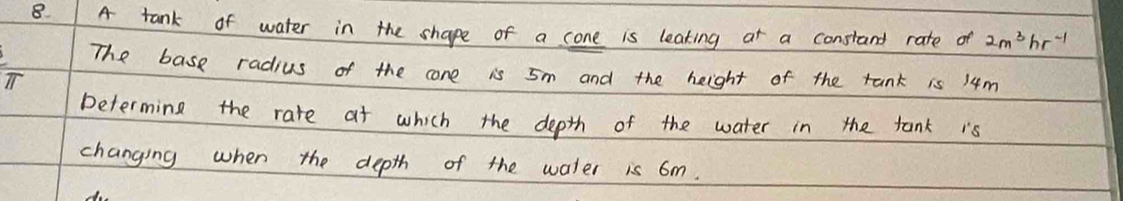 8. A tank of water in the shape of a cone is leaking at a constant rate of 2m³hr⁻¹
The base radius of the cone is 5m and the height of the tank is 14m
π
Determine the rate at which the depth of the water in the tank is
changing when the depth of the water is 6m.